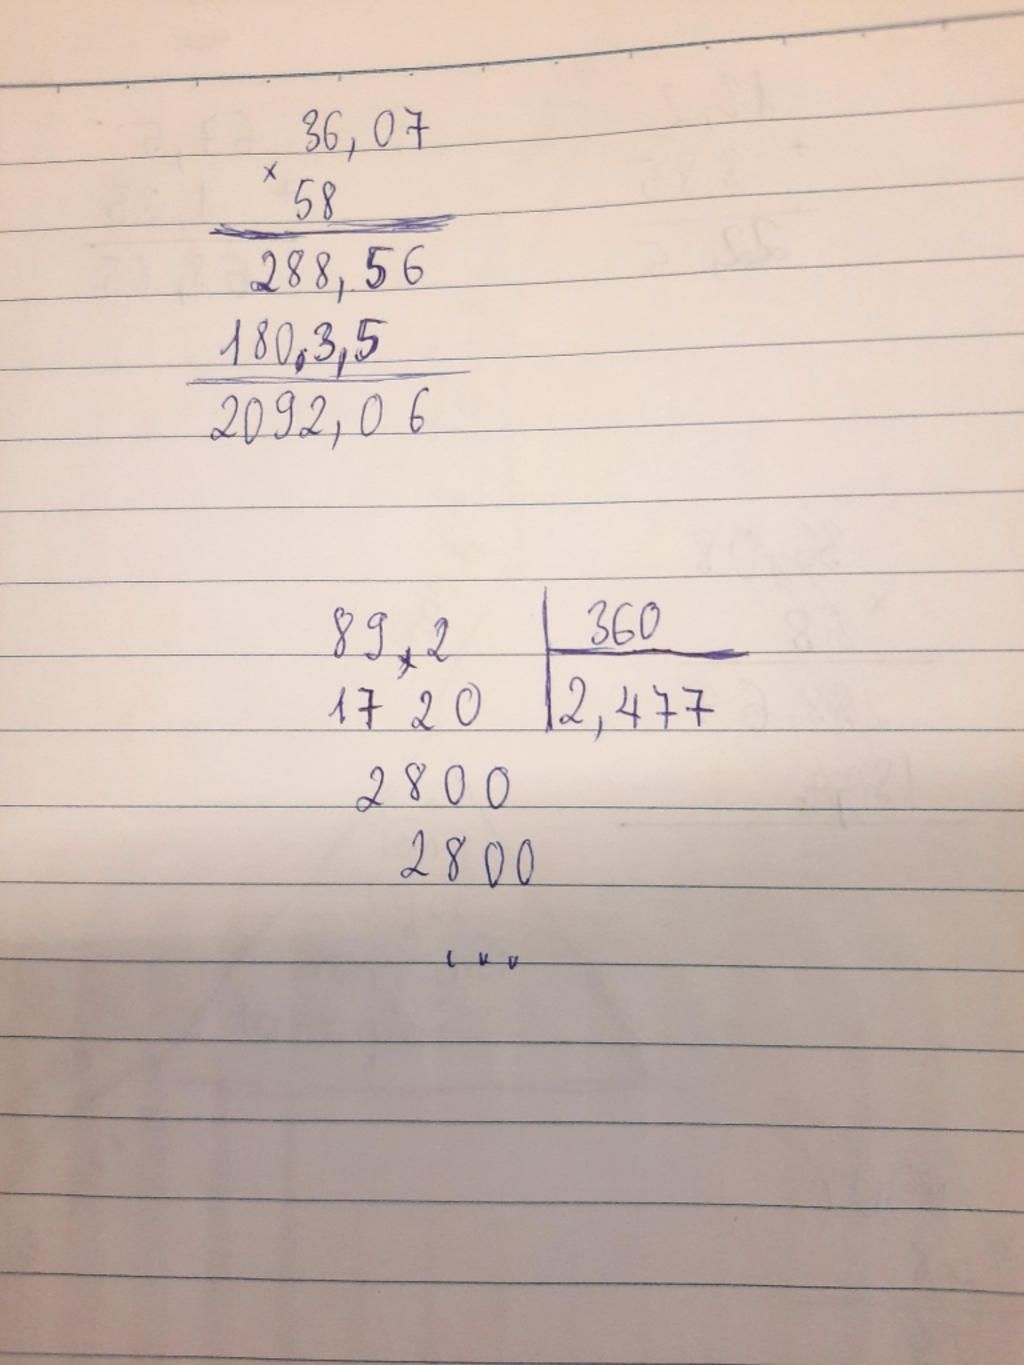 36,07
×
58
288,56
180,3,5
2092,06
89,2 360
1720 2,477
2800
2800
...